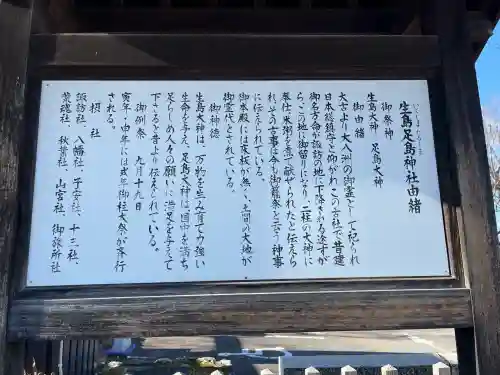 生島足島神社由緒
御祭神
生島大神　足島大神
御由緒
太古より大八洲の御霊として祀られ
日本総鎮守と仰がれこの古社で昔建
御名方命が諏訪の地に下降される途すが
ら、この地に御留りになり、二柱の大神に
奉仕し米粥を煮て献ぜられたと伝えら
れ、その古事は今も御籠祭と云う神事
に伝えられている。
御本殿には床板が無く、土間の大地が
御霊代とされている。
御神徳
生島大神は、万物を生み育て力強い
生命を与え、足島大神は国中を満ち
足らしめ人々の願いに満足を与えて
下さると昔より伝えられている。
御例祭　九月十九日
寅年・申年には式年御柱大祭が斉行
される。
摂社
諏訪社　八幡社、子安社、十三社、
荒魂社　秋葉社、山宮社、御旅所社